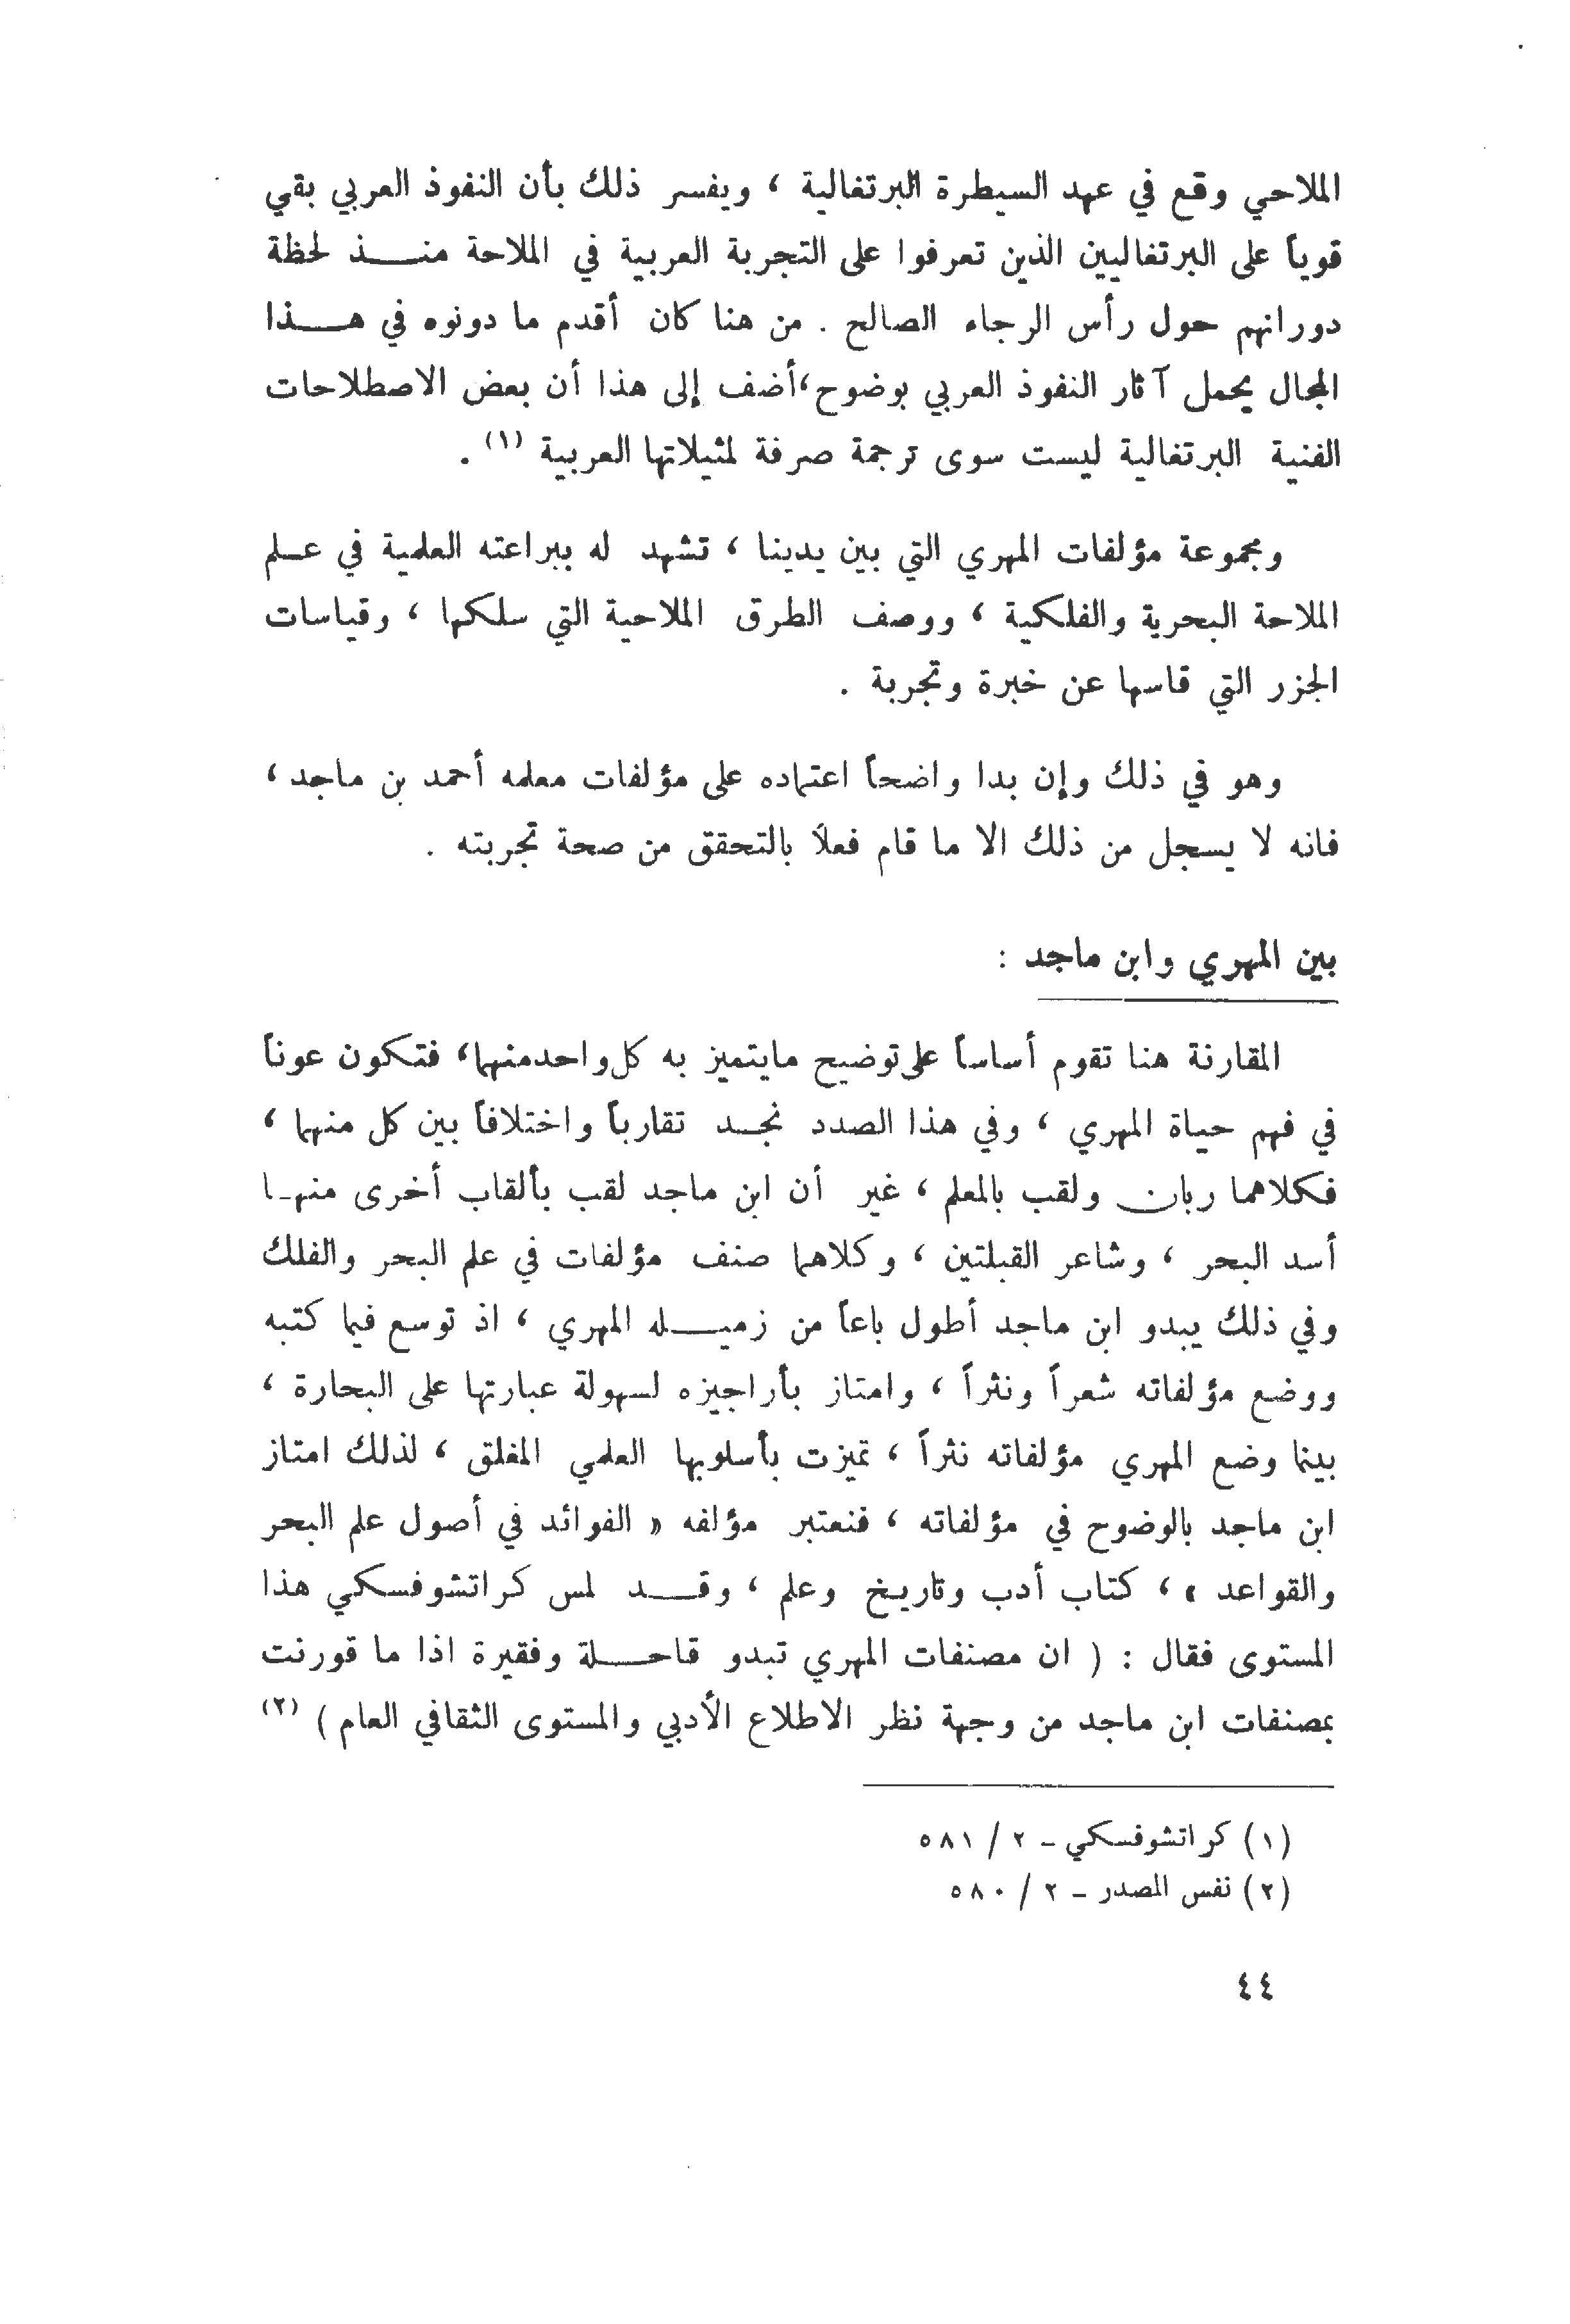 الملاحي وقع في عهد السيطرة البرتغالية ، ويفسر ذلك بأن النفوذ العربي بقي
قوياً على البرتغاليين الذين تعرفوا على التجربة العربية في الملاحة منــذ لحظة
دورانهم حول رأس الرجاء الصالح . من هنا كان أقدم ما دونوه في هــذا
المجال يحمل آثار النفوذ العربي بوضوح،أضف إلى هذا أن بعض الاصطلاحات
الفنية البرتغالية ليست سوى ترجمة صرفة لمثيلاتها العربية (١) .
ومجموعة مؤلفات المهري التي بين يدينا ، تشهد له ببراعته العلمية في عـلم
الملاحة البحرية والفلكية ، ووصف الطرق الملاحية التي سلكها ، وقياسات
الجزر التي قاسها عن خبرة وتجربة .
وهو في ذلك وإن بدا واضحاً اعتماده على مؤلفات معلمه أحمد بن ماجد ،
فانه لا يسجل من ذلك الا ما قام فعلاً بالتحقق من صحة تجربته .
بين المهري وابن ماجد :
المقارنة هنا تقوم أساساً على توضيح مايتميز به كل واحدمنهما، فتكون عوناً
في فهم حياة المهري ، وفي هذا الصدد نجـد تقارباً واختلافاً بين كل منهما ،
فكلاهما ربان ولقب بالمعلم ، غير أن ابن ماجد لقب بألقاب أخرى منهـا
أسد البحر ، وشاعر القبلتين ، وكلاهما صنف مؤلفات في علم البحر والفلك
وفي ذلك يبدو ابن ماجد أطول باعاً من زميــله المهري ، اذ توسع فيما كتبه
ووضع مؤلفاته شعراً ونثراً ، وامتاز بأراجيزه لسهولة عبارتها على البحارة ،
بينما وضع المهري مؤلفاته نثراً ، تميزت بأسلوبها العلمي المغلق ، لذلك امتاز
ابن ماجد بالوضوح في مؤلفاته ، فنعتبر مؤلفه « الفوائد في أصول علم البحر
والقواعد » ، كتاب أدب وتاريخ وعلم ، وقــد لمس كراتشوفسكي هذا
المستوى فقال : ( ان مصنفات المهري تبدو قاحــلة وفقيرة اذا ما قورنت
بمصنفات ابن ماجد من وجهة نظر الاطلاع الأدبي والمستوى الثقافي العام ) (٢)
(١) كراتشوفسكي – ٢ / ٥٨١
(٢) نفس المصدر – ٢ / ٥٨٠
٤٤